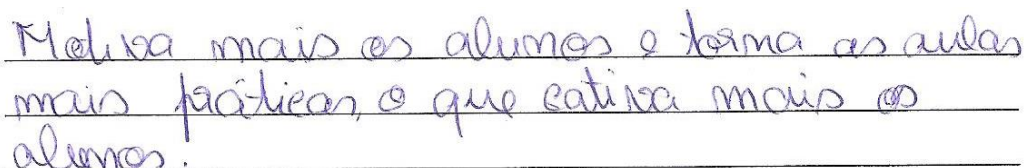 Motiva mais os alunos e torna as aulas
mais práticas, o que cativa mais os
alunos.